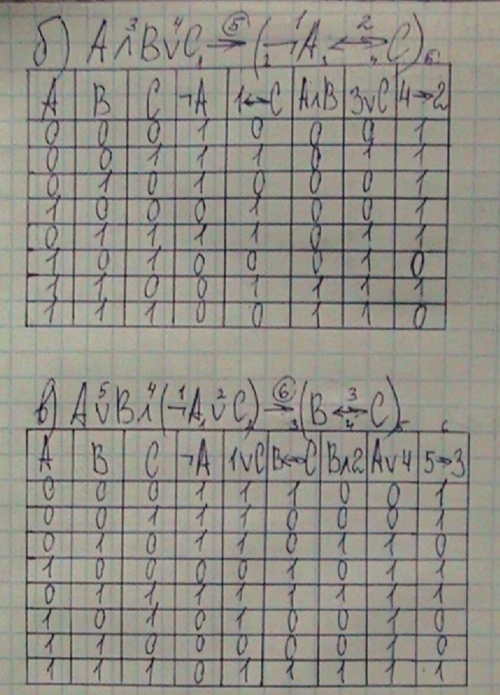 б) A∧B∨C → (¬A ↔ C)
3 4 5 1 2
A B C ¬A 1↔C A∧B 3∨C 4→2
0 0 0 1 0 0 0 1
0 0 1 1 1 0 1 1
0 1 0 1 0 0 0 1
1 0 0 0 1 0 0 1
0 1 1 1 1 0 1 1
1 0 1 0 0 0 1 0
1 1 0 0 1 1 1 1
1 1 1 0 0 1 1 0
в) A∨B∧(¬A∨C) → (B↔C)
5 4 1 2 6 3
A B C ¬A 1∨C B↔C B∧2 A∨4 5→3
0 0 0 1 1 1 0 0 1
0 0 1 1 1 0 0 0 1
0 1 0 1 1 0 1 1 0
1 0 0 0 0 1 0 1 1
0 1 1 1 1 1 1 1 1
1 0 1 0 1 0 0 1 0
1 1 0 0 0 0 0 1 0
1 1 1 0 1 1 1 1 1